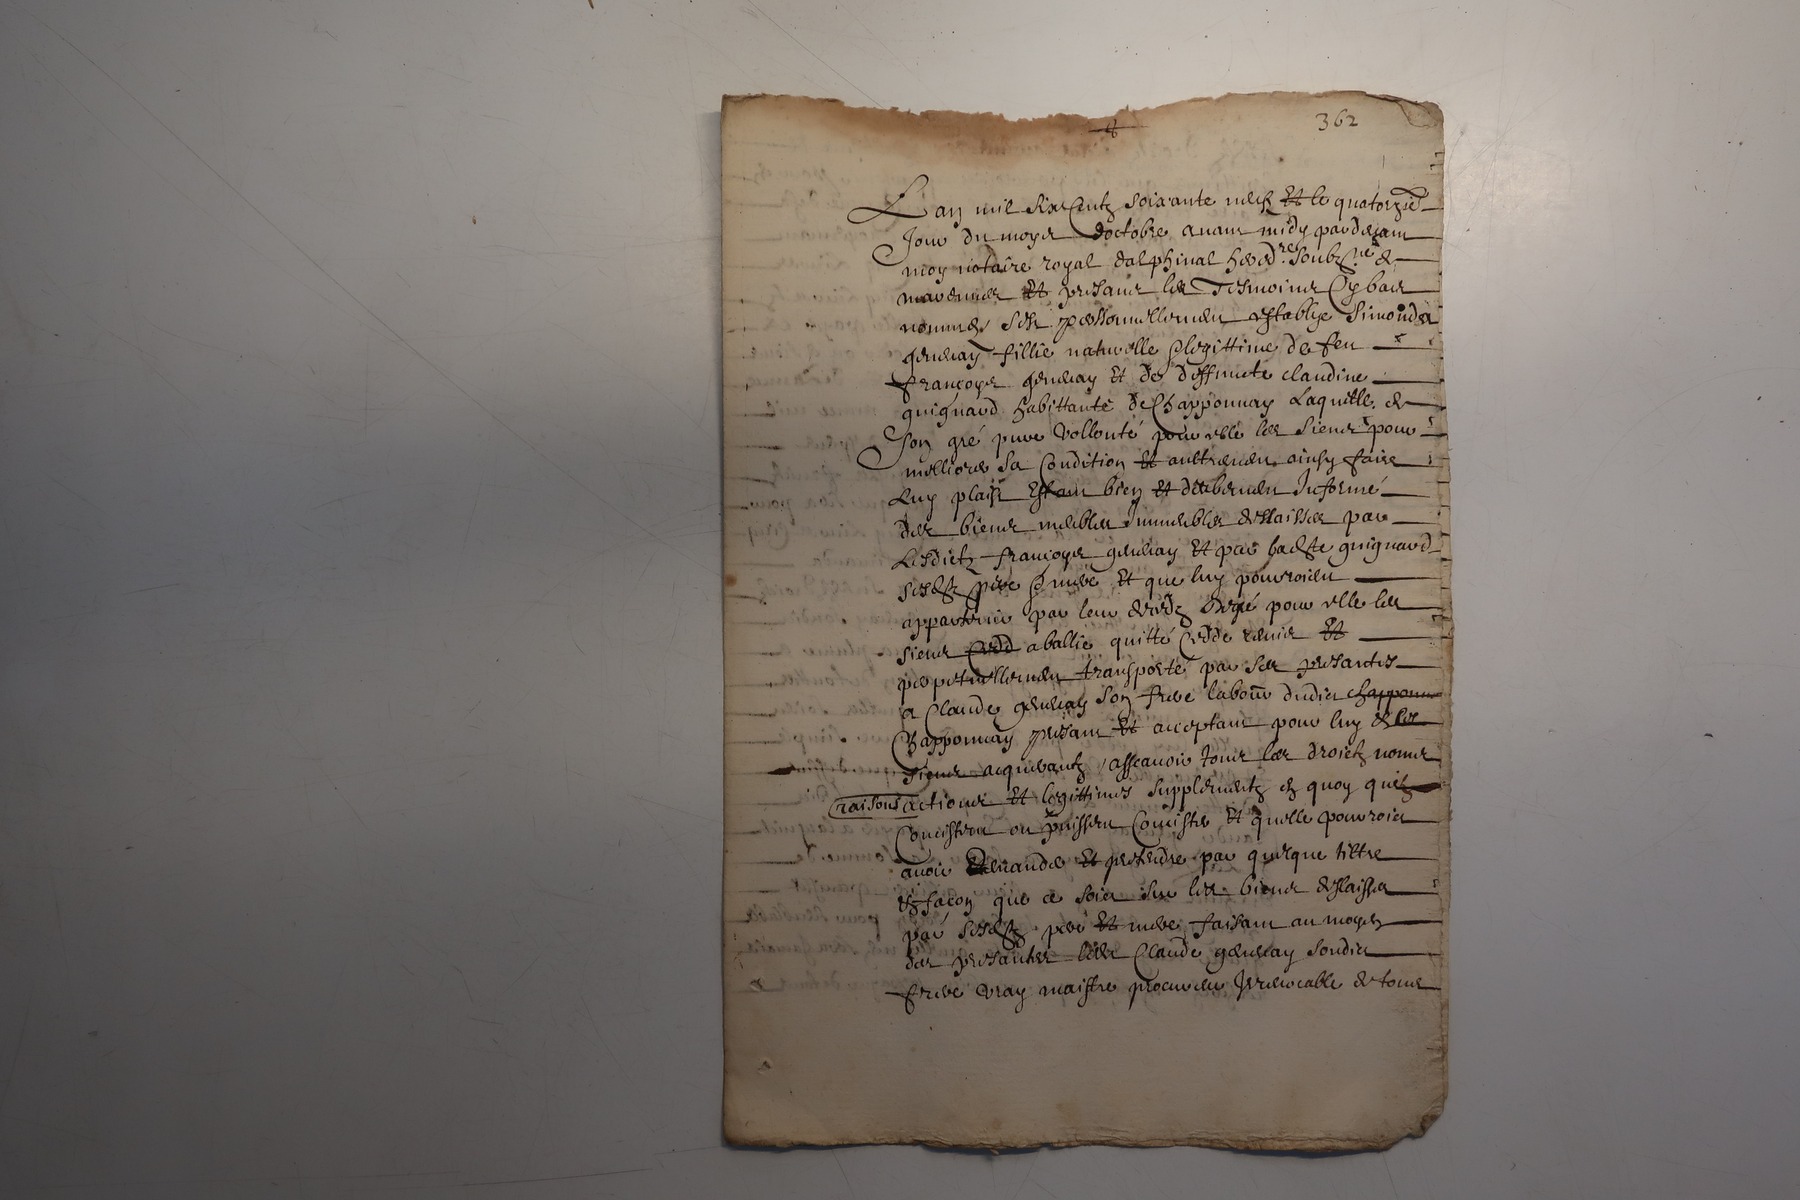 362
Lan mil six centz soixante neuf et le quatorzie
Jour du moys doctobre avant midy pardevant
moy notaire royal dalphinal hered.re soubz.né de
marennes et presant les Tesmoins cy bas
nommes sest personnellement establye Simonde
generay fillie naturelle & legittime de feu
françoys generay et de deffuncte claudine
guignard habittante de Chapponnay Laquelle de
Son gré pure vollonté pour elle les siens pour
melliorer sa condition et aultrement ainsy faire
luy plaist estant bien et deubement Informé
des biens meubles immeubles delaisses par
Lesdictz françoys generay et par guignard
sesdz pere & mere et que luy pourroient
appartenir par leur deces pour elle les
siens a ballie quitté cedde remis et
perpetuellement transporté par ses presantes
a Claude generay son frere labour dudict chappon
Chapponnay presant et acceptant pour luy & les
siens acquerantz assçavoir tous les droictz noms
raisons actions et legittimes supplementz en quoy quilz
Concistent ou puissent Concister et quelle pourroit
avoir demander et pretendre par quelque tiltre
et façon que ce soict sur les biens delaisses
par sesdz pere et mere faisant au moyen
des presantes ledt Claude generay sondict
frere vray maistre procureur Irrevocable & tous